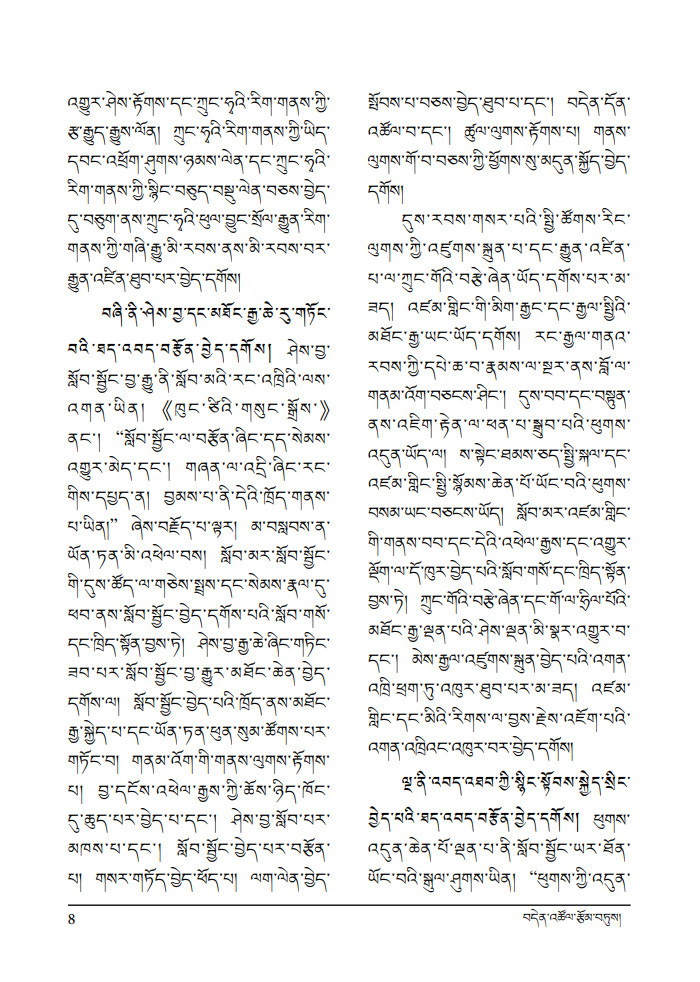 འགྱུར་ཤེས་རྟོགས་དང་ཀྲུང་ཧྭའི་རིག་གནས་ཀྱི་
རྩ་རྒྱུད་རྒྱུས་ལོན། ཀྲུང་ཧྭའི་རིག་གནས་ཀྱི་ཡིད་
དབང་འཕྲོག་ཤུགས་ཉམས་ལེན་དང་ཀྲུང་ཧྭའི་
རིག་གནས་ཀྱི་སྙིང་བཅུད་བསྡུ་ལེན་བཅས་བྱེད་
དུ་བཅུག་ནས་ཀྲུང་ཧྭའི་ཕུལ་བྱུང་སྲོལ་རྒྱུན་རིག་
གནས་ཀྱི་གཞི་རྒྱུ་མི་རབས་ནས་མི་རབས་བར་
རྒྱུན་འཛིན་ཐུབ་པར་བྱེད་དགོས།
བཞི་ནི་ཤེས་བྱ་དང་མཐོང་རྒྱ་ཆེ་རུ་གཏོང་
བའི་ཐད་འབད་བརྩོན་བྱེད་དགོས། ཤེས་བྱ་
སློབ་སྦྱོང་བྱ་རྒྱུ་ནི་སློབ་མའི་རང་འཁྲིའི་ལས་
འགན་ཡིན། 《ཁུང་ཙིའི་གསུང་སྒྲོས་》
ནང་། “སློབ་སྦྱོང་ལ་བརྩོན་ཞིང་དད་སེམས་
འགྱུར་མེད་དང་། གཞན་ལ་འདྲི་ཞིང་རང་
གིས་དཔྱད་ན། བྱམས་པ་ནི་དེའི་ཁྲོད་གནས་
པ་ཡིན།” ཞེས་བརྗོད་པ་ལྟར། མ་བསླབས་ན་
ཡོན་ཏན་མི་འཕེལ་བས། སློབ་མར་སློབ་སྦྱོང་
གི་དུས་ཚོད་ལ་གཅེས་སྤྲས་དང་སེམས་རྣལ་དུ་
ཕབ་ནས་སློབ་སྦྱོང་བྱེད་དགོས་པའི་སློབ་གསོ་
དང་ཁྲིད་སྟོན་བྱས་ཏེ། ཤེས་བྱ་རྒྱ་ཆེ་ཞིང་གཏིང་
ཟབ་པར་སློབ་སྦྱོང་བྱ་རྒྱུར་མཐོང་ཆེན་བྱེད་
དགོས་ལ། སློབ་སྦྱོང་བྱེད་པའི་ཁྲོད་ནས་མཐོང་
རྒྱ་སྐྱེད་པ་དང་ཡོན་ཏན་ཕུན་སུམ་ཚོགས་པར་
གཏོང་བ། གནམ་འོག་གི་གནས་ལུགས་རྟོགས་
པ། བྱ་དངོས་འཕེལ་རྒྱས་ཀྱི་ཆོས་ཉིད་ཁོང་
དུ་ཆུད་པར་བྱེད་པ་དང་། ཤེས་བྱ་སློབ་པར་
མཁས་པ་དང་། སློབ་སྦྱོང་བྱེད་པར་བརྩོན་
པ། གསར་གཏོད་བྱེད་ཕོད་པ། ལག་ལེན་བྱེད་
སྤོབས་པ་བཅས་བྱེད་ཐུབ་པ་དང་། བདེན་དོན་
འཚོལ་བ་དང་། ཚུལ་ལུགས་རྟོགས་པ། གནས་
ལུགས་གོ་བ་བཅས་ཀྱི་ཕྱོགས་སུ་མདུན་སྐྱོད་བྱེད་
དགོས།
དུས་རབས་གསར་པའི་སྤྱི་ཚོགས་རིང་
ལུགས་ཀྱི་འཛུགས་སྐྲུན་པ་དང་རྒྱུན་འཛིན་
པ་ལ་ཀྲུང་གོའི་བརྩེ་ཞེན་ཡོད་དགོས་པར་མ་
ཟད། འཛམ་གླིང་གི་མིག་རྒྱང་དང་རྒྱལ་སྤྱིའི་
མཐོང་རྒྱ་ཡང་ཡོད་དགོས། རང་རྒྱལ་གནའ་
རབས་ཀྱི་དཔེ་ཆ་བ་རྣམས་ལ་སྔར་ནས་བློ་ལ་
གནམ་འོག་བཅངས་ཤིང་། དུས་བབ་དང་བསྟུན་
ནས་འཇིག་རྟེན་ལ་ཕན་པ་སྒྲུབ་པའི་ཕུགས་
འདུན་ཡོད་ལ། ས་སྟེང་ཐམས་ཅད་སྤྱི་སྐལ་དང་
འཛམ་གླིང་སྤྱི་སྙོམས་ཆེན་པོ་ཡོང་བའི་ཕུགས་
བསམ་ཡང་བཅངས་ཡོད། སློབ་མར་འཛམ་གླིང་
གི་གནས་བབ་དང་དེའི་འཕེལ་རྒྱས་དང་འགྱུར་
ལྡོག་ལ་དོ་ཁུར་བྱེད་པའི་སློབ་གསོ་དང་ཁྲིད་སྟོན་
བྱས་ཏེ། ཀྲུང་གོའི་བརྩེ་ཞེན་དང་གོ་ལ་ཧྲིལ་པོའི་
མཐོང་རྒྱ་ལྡན་པའི་ཤེས་ལྡན་མི་སྣར་འགྱུར་བ་
དང་། མེས་རྒྱལ་འཛུགས་སྐྲུན་བྱེད་པའི་འགན་
འཁྲི་ཕྲག་ཏུ་འཁུར་ཐུབ་པར་མ་ཟད། འཛམ་
གླིང་དང་མིའི་རིགས་ལ་བྱས་རྗེས་འཇོག་པའི་
འགན་འཁྲིའང་འཁུར་བར་བྱེད་དགོས།
ལྔ་ནི་འབད་འཐབ་ཀྱི་སྙིང་སྟོབས་སྐྱེད་སྲིང་
བྱེད་པའི་ཐད་འབད་བརྩོན་བྱེད་དགོས། ཕུགས་
འདུན་ཆེན་པོ་ལྡན་པ་ནི་སློབ་སྦྱོང་ཡར་ཐོན་
ཡོང་བའི་སྒུལ་ཤུགས་ཡིན། “ཕུགས་ཀྱི་འདུན་
8
བདེན་འཚོལ་རྩོམ་བཏུས།